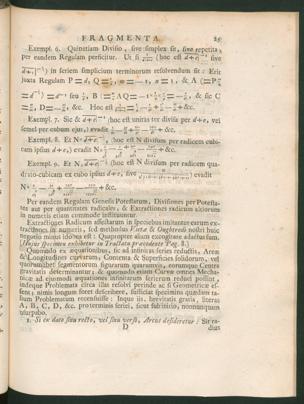 FRAGMENTA. 25
Exempl. 6. Quinetiam Divisio, sive simplex sit, sive repetita,
per eandem Regulam perficitur. Ut si
(hoc est d+e|⁻¹ sive
in seriem simplicium terminorum resolvendum sit: Erit
juxta Regulam P=d,
&c. Hoc est
+&c.
Exempl. 7. Sic & d+e|⁻³ (hoc est unitas ter divisa per d+e, vel
semel per cubum ejus,) evadit
+&c.
Exempl. 8. Et N×
(hoc est N divisum per radicem cubi-
cam ipsius d+e,) evadit N×
+&c.
Exempl. 9. Et N×
(hoc est N divisum per radicem qua-
drato-cubicam ex cubo ipsius d+e, sive
) evadit
N×
+&c.
Per eandem Regulam Genesis Potestatum, Divisiones per Potesta-
tes aut per quantitates radicales, & Extractiones radicum altiorum
in numeris etiam commode instituuntur.
Extractiones Radicum affectarum in speciebus imitantur earum ex-
tractiones in numeris, sed methodus Vietæ & Oughtredi nostri huic
negotio minus idonea est: Quapropter aliam excogitare adactus sum.
(Hujus specimen exhibetur in Tractatu præcedente Pag. 8.)
Quomodo ex æquationibus, sic ad infinitas series reductis, Areæ
& Longitudines curvarum, Contenta & Superficies solidorum, vel
quorumlibet segmentorum figurarum quarumvis, eorumque Centra
gravitatis determinantur; & quomodo etiam Curvæ omnes Mecha-
nicæ ad ejusmodi æquationes infinitarum serierum reduci possint,
indeque Problemata circa illas resolvi perinde ac si Geometricæ es-
sent; nimis longum foret describere, sufficiat specimina quædam ta-
lium Problematum recensuisse: Inque iis, brevitatis gratia, literas
A, B, C, D, &c. pro terminis seriei, sicut sub initio, nonnunquam
usurpabo.
1. Si ex dato sinu recto, vel sinu verso, Arcus desideretur: Sit ra-
D dius